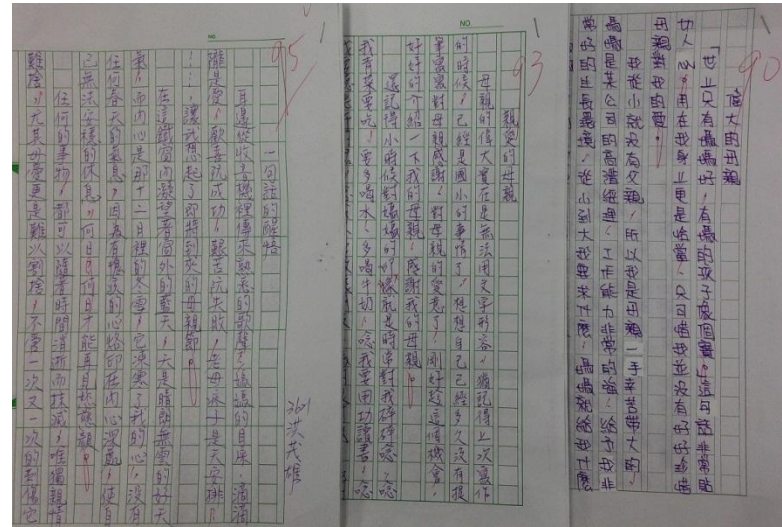 90
偉大的母親
「世上只有媽媽好，有媽的孩子像個寶」這句話非常貼
女人心，用在我身上更是恰當，只可惜我並沒有好好珍惜
母親對我的愛。
我從小就沒有父親，所以我是母親一手辛苦帶大的，
媽媽是某公司的高階經理，工作能力非常的強，給予我非
常好的生長環境，從小到大我要求什麼，媽媽就給我什麼
NO.
93
親愛的母親
母親的偉大實在是無法用文字形容，猶記得上次寫作
的時候，已經是國小的事情了，想想自己已經多久沒有提
筆寫寫對母親感謝、對母親的愛意了，剛好趁這個機會，
好好的介紹一下我的母親，感謝我的母親。
還記得小時候對媽媽的印象就是時常對我碎碎唸，唸
我青菜要吃，要多喝水、多喝牛奶，唸我要用功讀書，唸
NO.
95
3601 洪茂雄
一句話的醒悟
耳邊從收音機裡傳來熟悉的歌聲，媽媽的目屎 滴滴
攏是愛，歡喜阮成功，艱苦阮失敗，老母疼子是天安排！
……讓我想起了即將到來的母親節。
在這鐵窗內凝望著窗外的藍天，六是晴朗無雲的好天
氣，而內心是那十二月裡的冬雪，它凍寒了我的心，沒有
任何春天的氣息，因為有懷疚的心烙印在內心深處，使自
己無法安穩的休息，何日，何日才能再目妳慈顏。
任何的事物，都可以隨著時間消逝而抹滅，唯獨親情
難捨，尤其母愛更是難以割捨，不管一次又一次的刺傷它